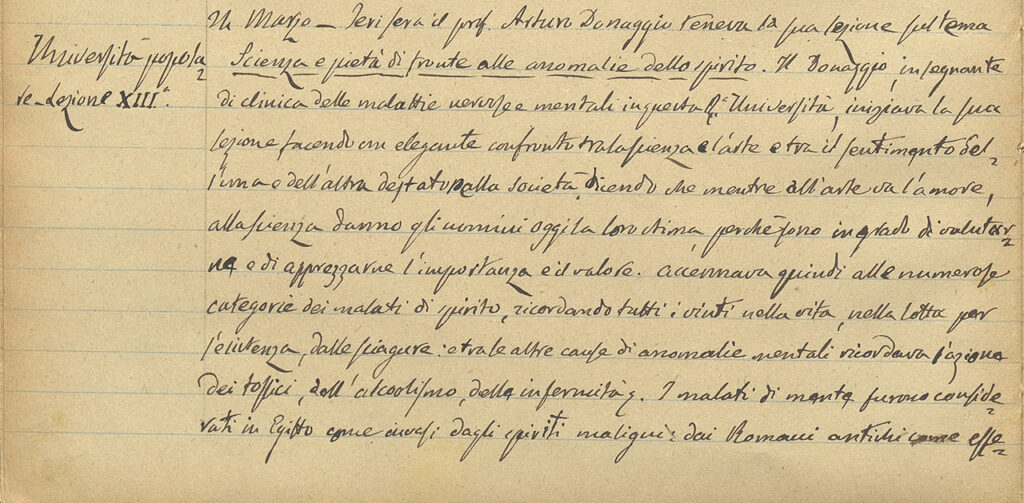 Università popola=
re_Lezione XIII.ª
Marzo – Jeri sera il prof. Arturo Donaggio teneva la sua lezione sul tema
Scienza e pietà di fronte alle anomalie dello spirito. Il Donaggio, insegnante
di clinica delle malattie nervose e mentali in questa R.ª Università, iniziava la sua
lezione facendo un elegante confronto tra la scienza e l'arte e tra il sentimento del=
l'una e dell'altra destato nella società, dicendo che mentre all'arte va l'amore,
alla scienza danno gli uomini oggi la loro stima, perchè sono in grado di valutar=
ne e di apprezzarne l'importanza e il valore. Accennava quindi alle numerose
categorie dei malati di spirito, ricordando tutti i vinti nella vita, nella lotta per
l'esistenza, dalle sciagure: e tra le altre cause di anomalie mentali ricordava l'azione
dei tossici, dell'alcoolismo, delle infermità. I malati di mente furono conside=
rati in Egitto come invasi dagli spiriti maligni: dai Romani antichi come esse=